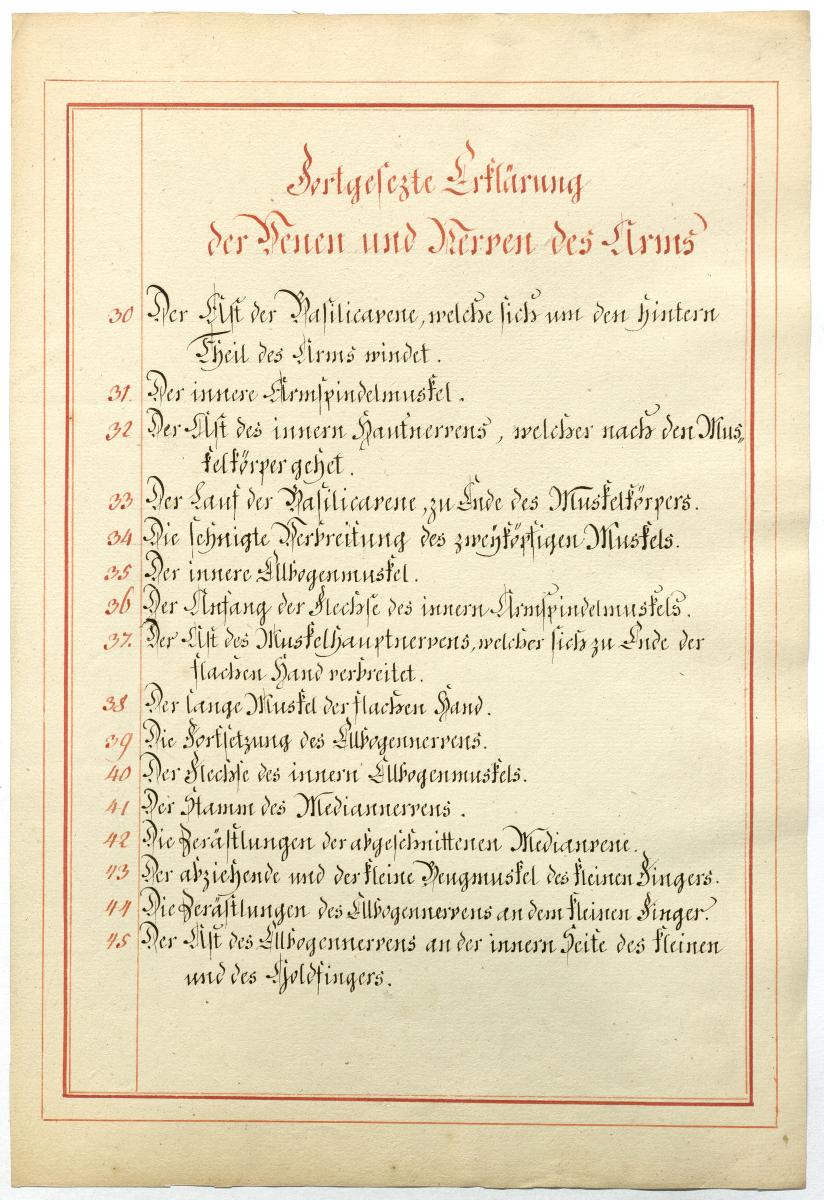 Fortgesezte Erklärung
der Venen und Nerven des Arms
30 Der Ast der Basilicavene, welche sich um den hintern
Theil des Arms windet.
31. Der innere Armspindelmuskel.
32 Der Ast des innern Hautnervens, welcher nach den Mus„
kelkörper gehet.
33 Der Lauf der Basilicavene, zu Ende des Muskelkörpers.
34 Die sehnigte Verbreitung des zweyköpfigen Muskels.
35 Der innere Ellbogenmuskel.
36 Der Anfang der Flechse des innern Armspindelmuskels.
37. Der Ast des Muskelhauptnervens, welcher sich zu Ende der
flachen Hand verbreitet.
38 Der lange Muskel der flachen Hand.
39 Die Fortsetzung des Ellbogennervens.
40 Der Flechse des innern Ellbogenmuskels.
41 Der Stamm des Mediannervens.
42 Die Zerästlungen der abgeschnittenen Medianvene.
43 Der abziehende und der kleine Beugmuskel des kleinen Fingers.
44 Die Zerästlungen des Ellbogennervens an dem kleinen Finger.
45 Der Ast des Ellbogennervens an der innern Seite des kleinen
und des Goldfingers.